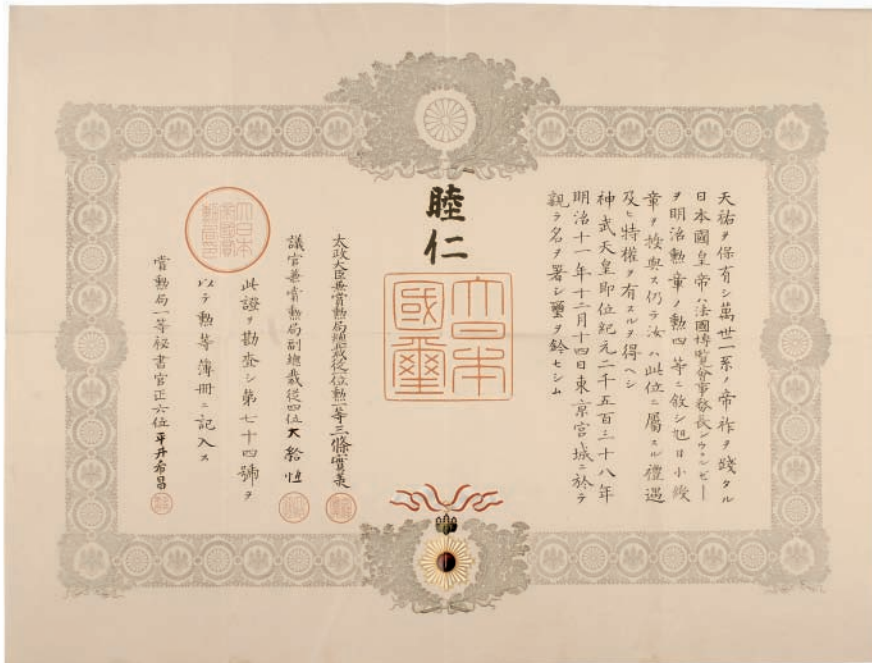 天祐ヲ保有シ萬世一系ノ帝祚ヲ踐タル
日本國皇帝ハ法國博覽會事務長シウァンビー
ヲ明治勲章ノ勲四等ニ敘シ旭日小綬
章ヲ授與ス仍テ汝ハ此位ニ屬スル禮遇
及ヒ特權ヲ有スルヲ得ヘシ
神武天皇即位紀元二千五百三十八年
明治十一年十二月十四日東京宮城ニ於テ
親ラ名ヲ署シ璽ヲ鈐セシム
睦仁
大日本國璽
太政大臣兼賞勲局總裁從一位勲一等三條實美
議官兼賞勲局副總裁從四位大給恒
此證ヲ勘査シ第七十四號ヲ
以テ勲等簿冊ニ記入ス
大日本帝國賞勲局印
賞勲局一等秘書官正六位平井希昌